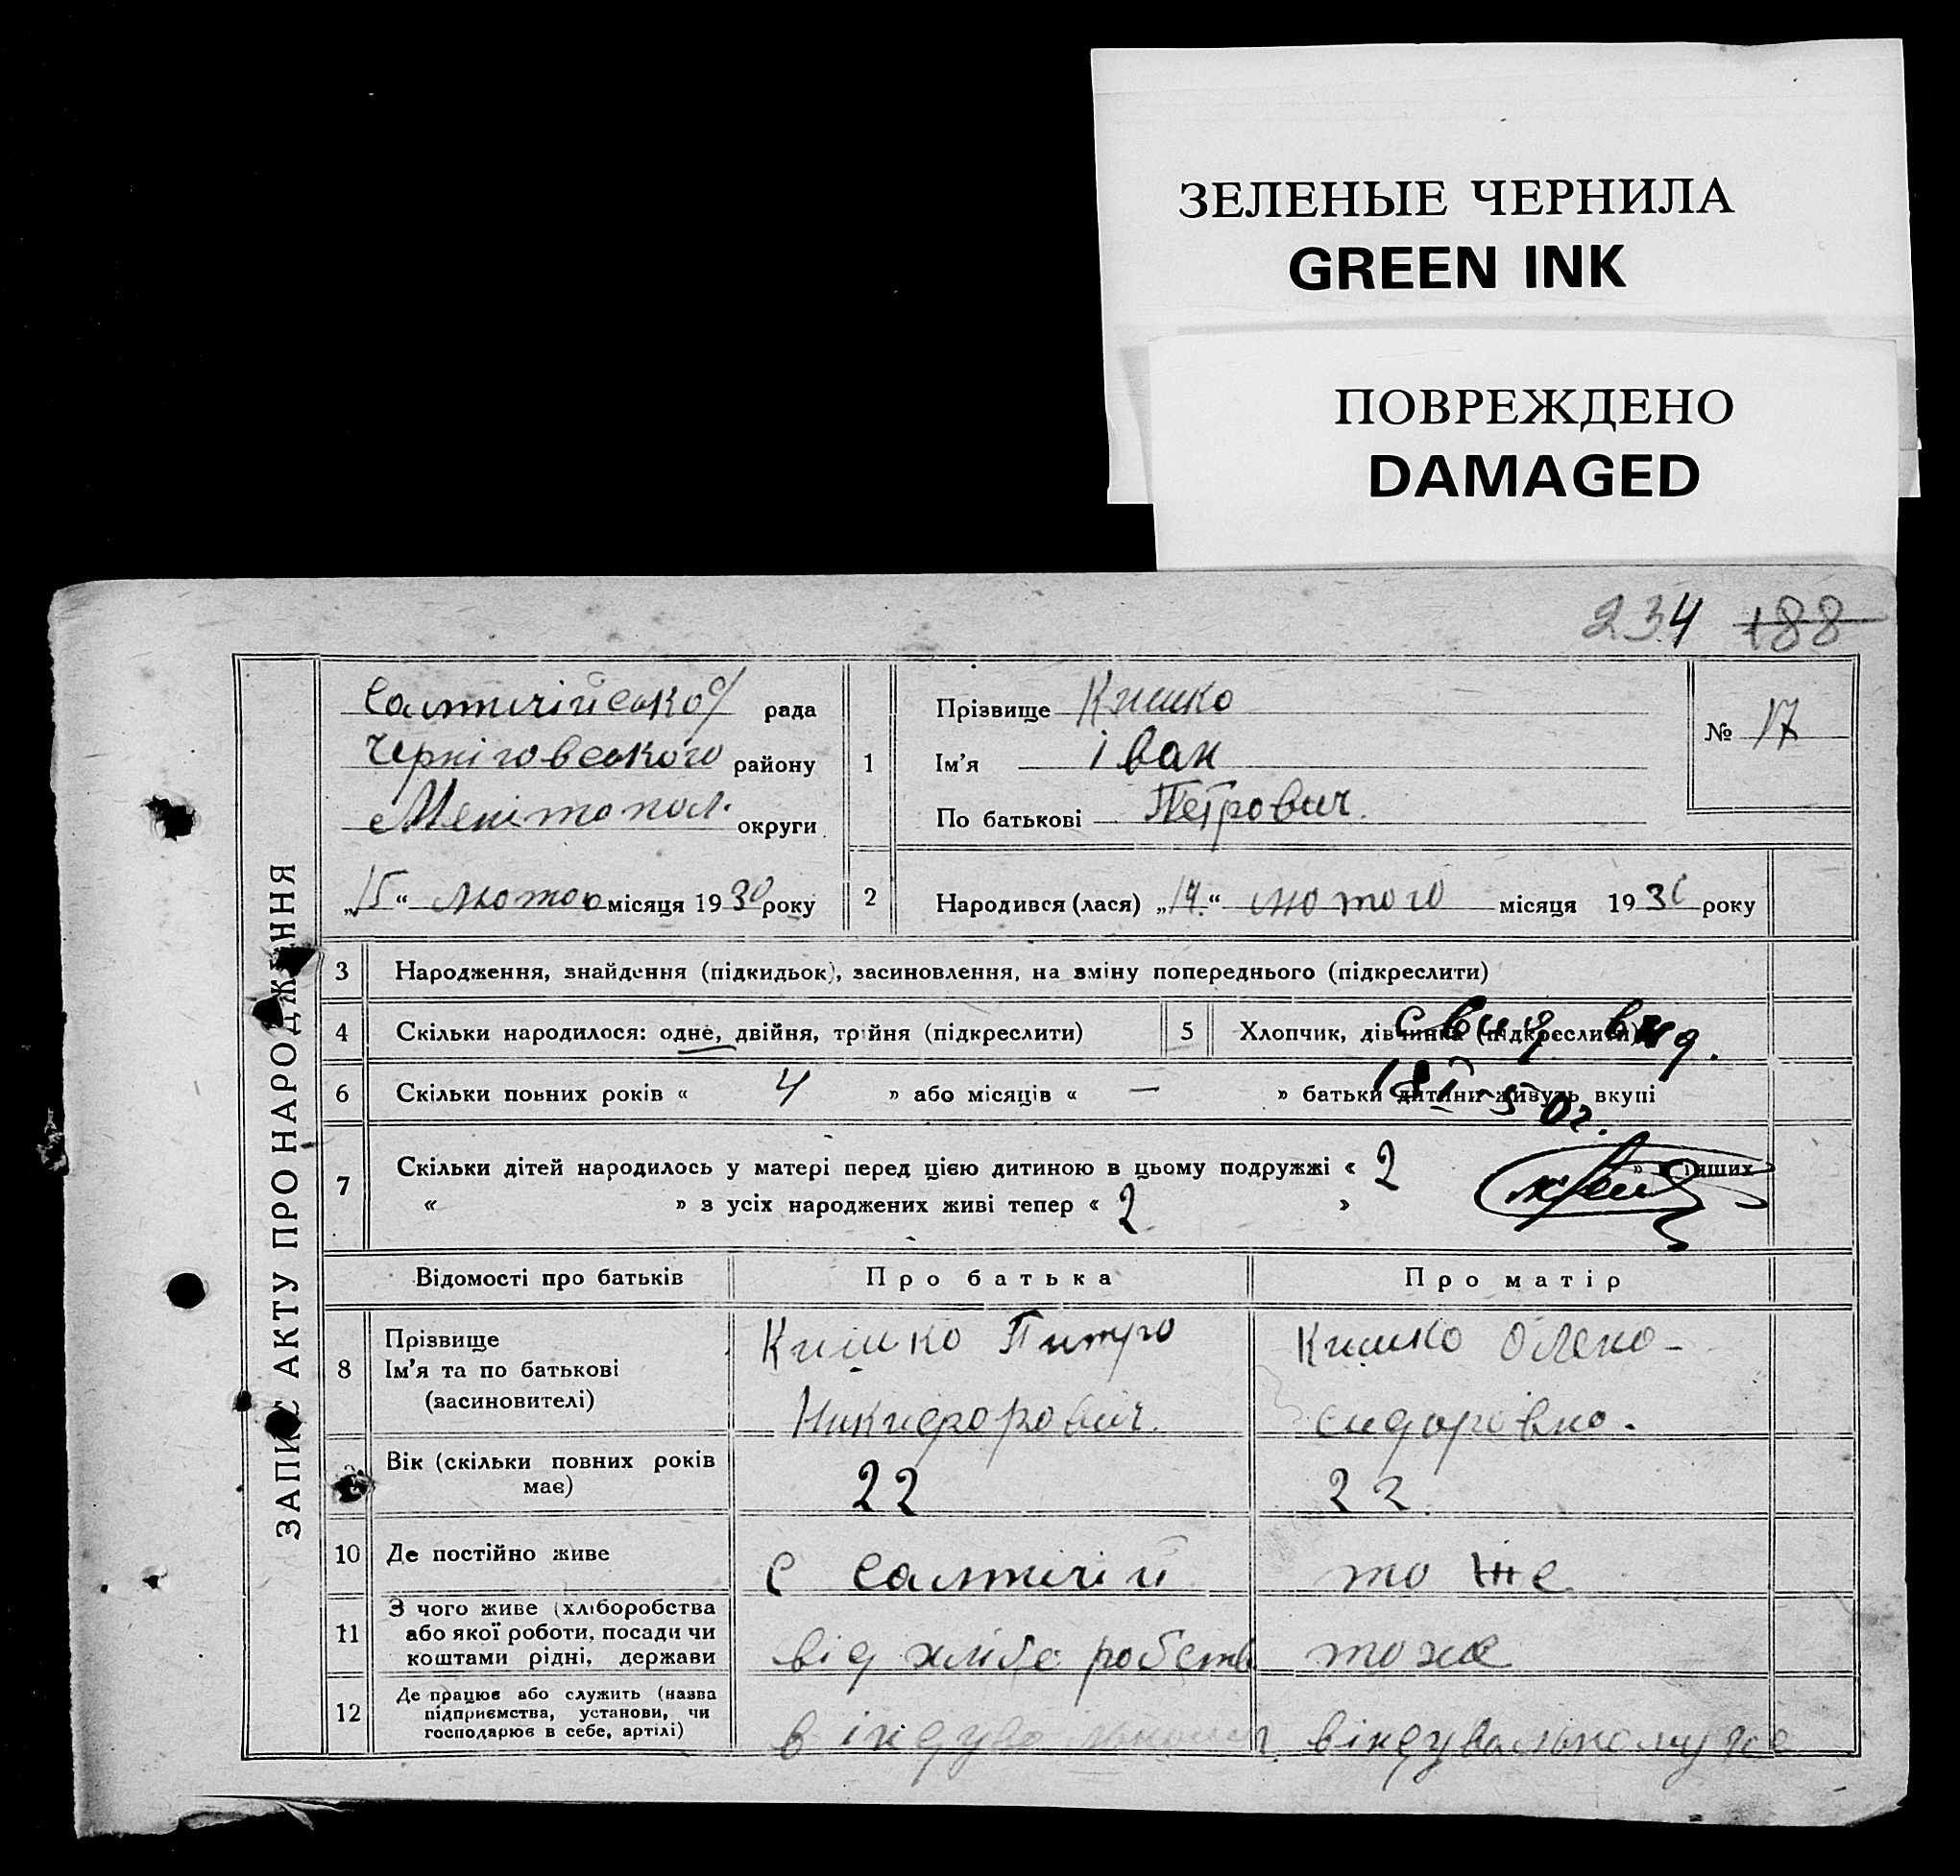 ЗЕЛЕНЫЕ ЧЕРНИЛА
GREEN INK
ПОВРЕЖДЕНО
DAMAGED
234 188
ЗАПИС АКТУ ПРО НАРОДЖЕННЯ
Салтичійсько/ рада
Чернiговського району
Мелітопол. округи
„15“ лютого місяця 1930 року
1
Прізвище Кишко
Ім'я Іван
По батькові Петрович.
№ 17
2
Народився (лася) „14“ лютого місяця 1930 року
3 Народження, знайдення (підкидьок), засиновлення, на зміну попереднього (підкреслити)
4 Скільки народилося: одне, двійня, трійня (підкреслити)
5 Хлопчик, дівчинка (підкреслити)
свид выд.
6 Скільки повних років « 4 » або місяців « — » батьки дитини живуть вкупі
7 Скільки дітей народилось у матері перед цією дитиною в цьому подружжі « 2 » в інших
« » з усіх народжених живі тепер « 2 »
Відомості про батьків Про батька Про матір
8 Прізвище
Ім'я та по батькові
(засиновителі)
Кишко Питро
Никифорович.
Кишко Олено-
Сидоровно.
Вік (скільки повних років
має)
22 22
10 Де постійно живе с Салтичій то же
11 З чого живе (хліборобства
або якої роботи, посади чи
коштами рідні, держави
від хлібо робств тоже
12 Де працює або служить (назва
підприємства, установи, чи
господарює в себе, артілі)
в індуво віндувальному